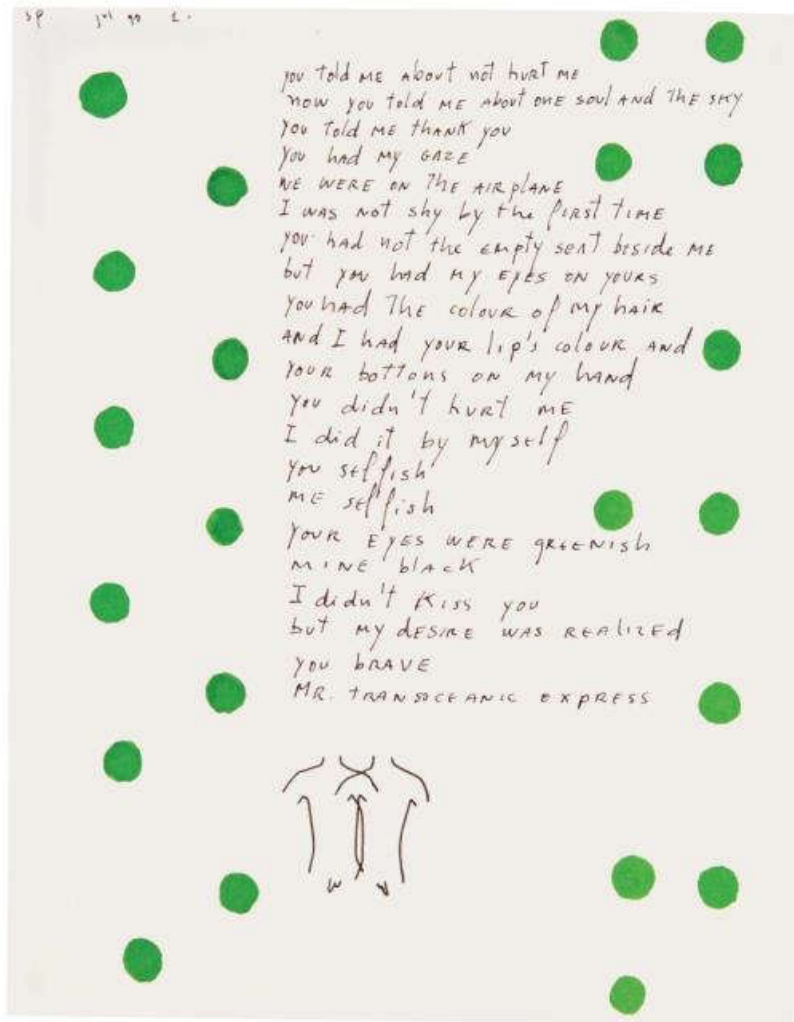 sp jul 90 1.
you told me about not hurt me
now you told me about one soul and the sky
you told me thank you
you had my gaze
we were on the airplane
I was not shy by the first time
you had not the empty seat beside me
but you had my eyes on yours
you had the colour of my hair
and I had your lip's colour and
your bottons on my hand
you didn't hurt me
I did it by myself
you selfish
me selfish
your eyes were greenish
mine black
I didn't kiss you
but my desire was realized
you brave
Mr. transoceanic express